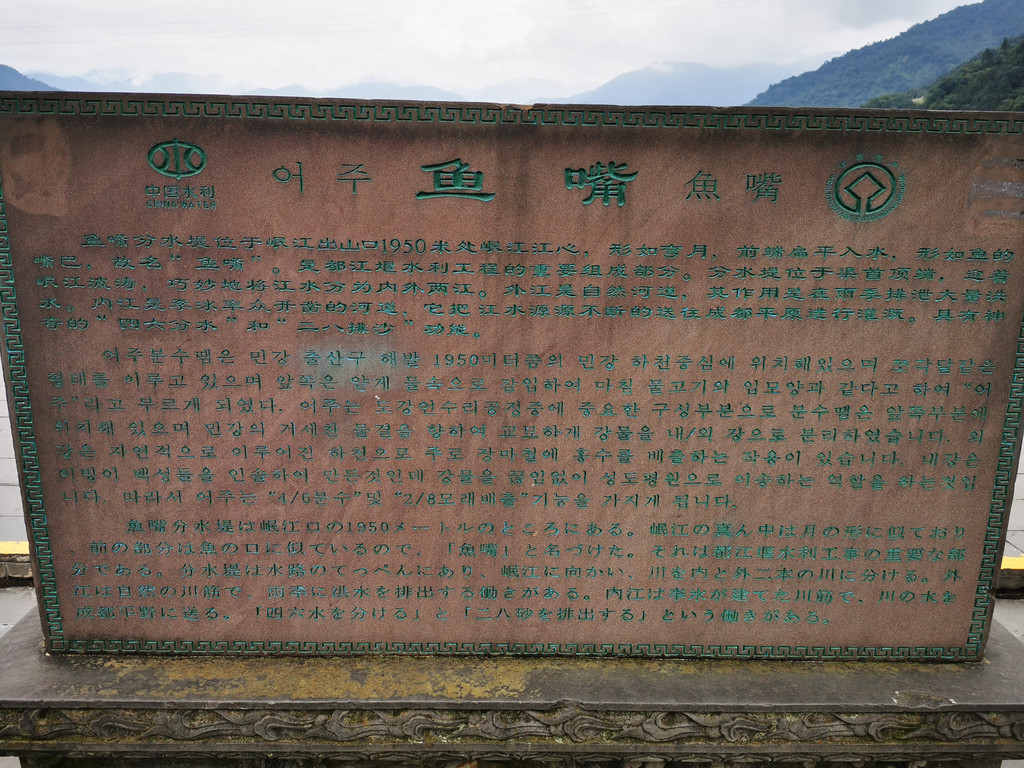 中国水利
CHINA WATER
어주 鱼嘴 魚嘴
鱼嘴分水堤位于岷江出山口1950米处岷江江心，形如弯月，前端扁平入水，形如鱼的
嘴巴，故名“鱼嘴”。是都江堰水利工程的重要组成部分。分水堤位于渠首顶端，迎着
岷江波涛，巧妙地将江水分为内外两江。外江是自然河道，其作用是在雨季排泄大量洪
水。内江是李冰率众开凿的河道，它把江水源源不断的送往成都平原进行灌溉。具有神
奇的“四六分水”和“二八排沙”功能。
여주분수땜은 민강 출산구 해발 1950미터쯤의 민강 하천중심에 위치해있으며 쪼각달같은
형태를 이루고 있으며 앞쪽은 얇게 물속으로 담입하여 마침 물고기의 입모양과 같다고 하여 “어
주”라고 부르게 되였다. 어주는 도강언수리공정중에 중요한 구성부분으로 분수땜은 앞쪽부분에
위치해 있으며 민강의 거세찬 물결을 향하여 교묘하게 강물을 내/외 강으로 분리하였습니다. 외
강은 자연적으로 이루어진 하천으로 주로 장마철에 홍수를 배출하는 작용이 있습니다. 내강은
이빙이 백성들을 인솔하여 만든것인데 강물을 끊임없이 성도평원으로 이송하는 역할을 하는것입
니다. 따라서 어주는 “4/6분수”및 “2/8모래배출”기능을 가지게 됩니다.
魚嘴分水堤は岷江口の1950メートルのところにある。岷江の真ん中は月の形に似ており
、前の部分は魚の口に似ているので、「魚嘴」と名づけた。それは都江堰水利工事の重要な部
分である。分水堤は水路のてっぺんにあり、岷江に向かい、川を内と外二本の川に分ける。外
江は自然の川筋で、雨季に洪水を排出する働きがある。内江は李氷が建てた川筋で、川の水を
成都平野に送る。「四六水を分ける」と「二八砂を排出する」という働きがある。